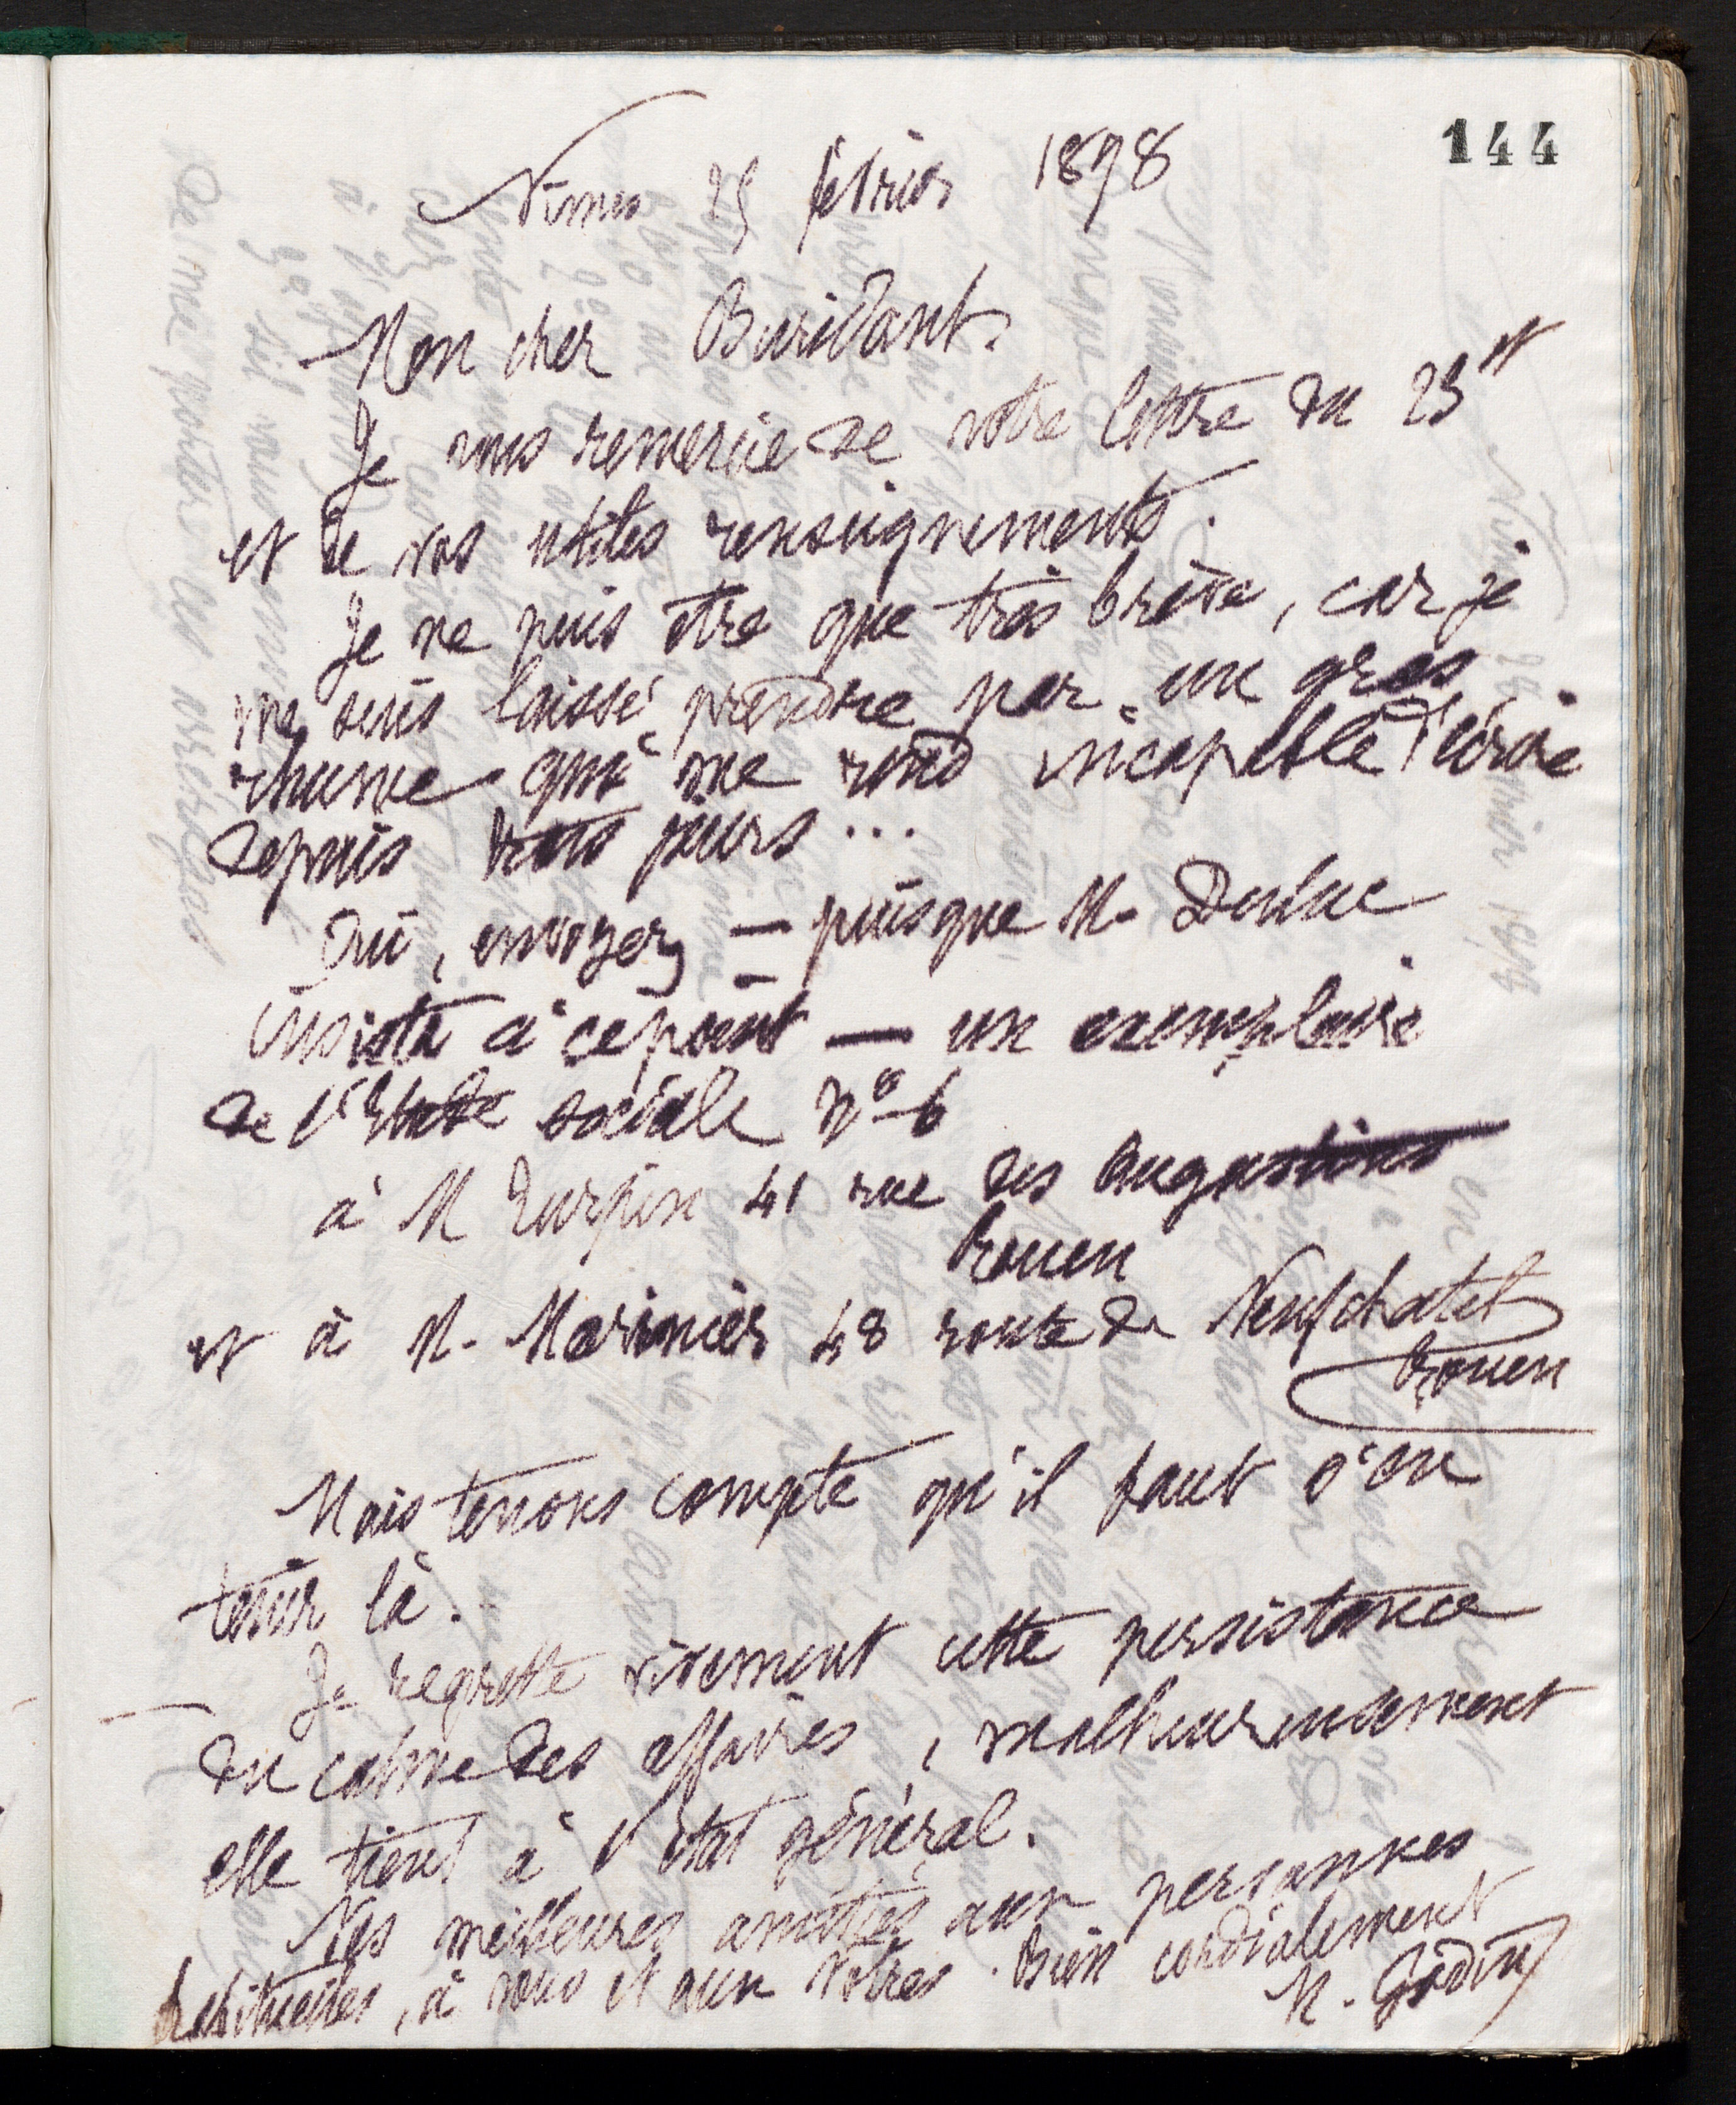 144
Nîmes 25 février 1898
Mon cher Buridant,
Je vous remercie de votre lettre du 23 ct
et de vos utiles renseignements.
Je ne puis être que très brève, car je
me suis laissé prendre par un gros
rhume qui me rend incapable d'écrire
depuis trois jours...
Oui, envoyez — puisque M. Dulac
insiste à ce point — un exemplaire
de l'Etude sociale N° 6
à M Turpin 41 rue des Augustins
Rouen
et à M. Marinier 48 route de Neufchatel
Rouen
Mais tenons compte qu'il faut s'en
tenir là.
— Je regrette vivement cette persistance
du calme des affaires, malheureusement
elle tient à l'état général.
Nos meilleures amitiés aux personnes
habituelles, à vous et aux vôtres. Bien cordialement
M. Godin